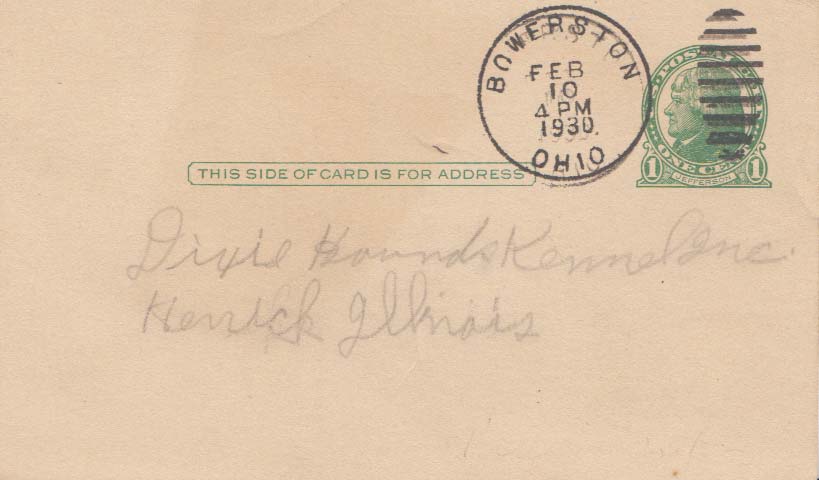 BOWERSTON
FEB
10
4 PM
1930
OHIO
ONE CENT
1 JEFFERSON 1
THIS SIDE OF CARD IS FOR ADDRESS
Dixie Hounds Kennel Inc.
Herrick Illinois